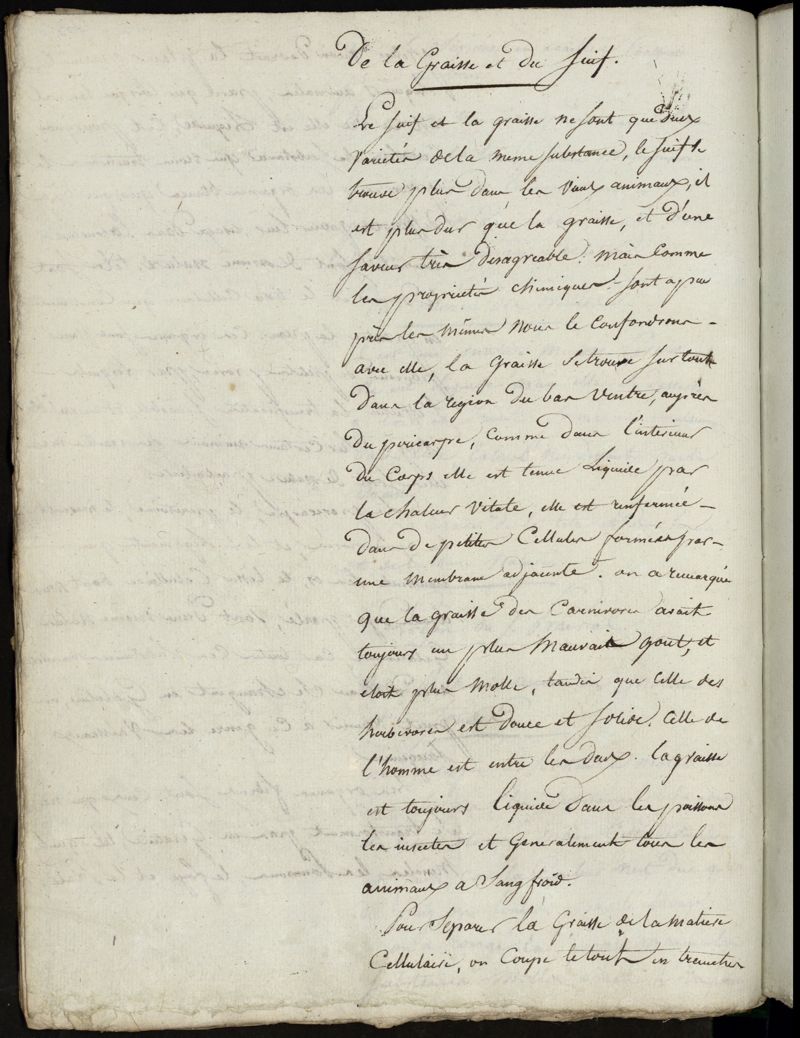 De la Graisse et du Suif.
Le Suif et la graisse ne sont que deux
varietés de la meme substance, le suif se
trouve plus dans les vieux animaux, il
est plus dur que la graisse, et d'une
saveur très desagreable. mais Comme
les proprietés chimiques sont a peu
près les mêmes nous le Confondrons -
avec elle, la Graisse se trouve surtout
dans la region du bas Ventre, auprès
du pericarpe, Comme dans l'interieur
du Corps elle est tenue Liquide par
la chaleur vitale, elle est renfermée -
dans de petites Cellules formées par -
une membrane adjacente. on a remarqué
que la graisse des Carnivores avait
toujours un plus mauvait gout, et
etoit plus molle, tandis que Celle des
herbivores est douce et solide. Celle de
l'homme est entre les deux. la graisse
est toujours liquide dans les poissons
les insectes et Generalement tous les
animaux a Sang froid.
Pour Separer la Graisse de la matiere
Cellulaire, on Coupe le tout en tranches